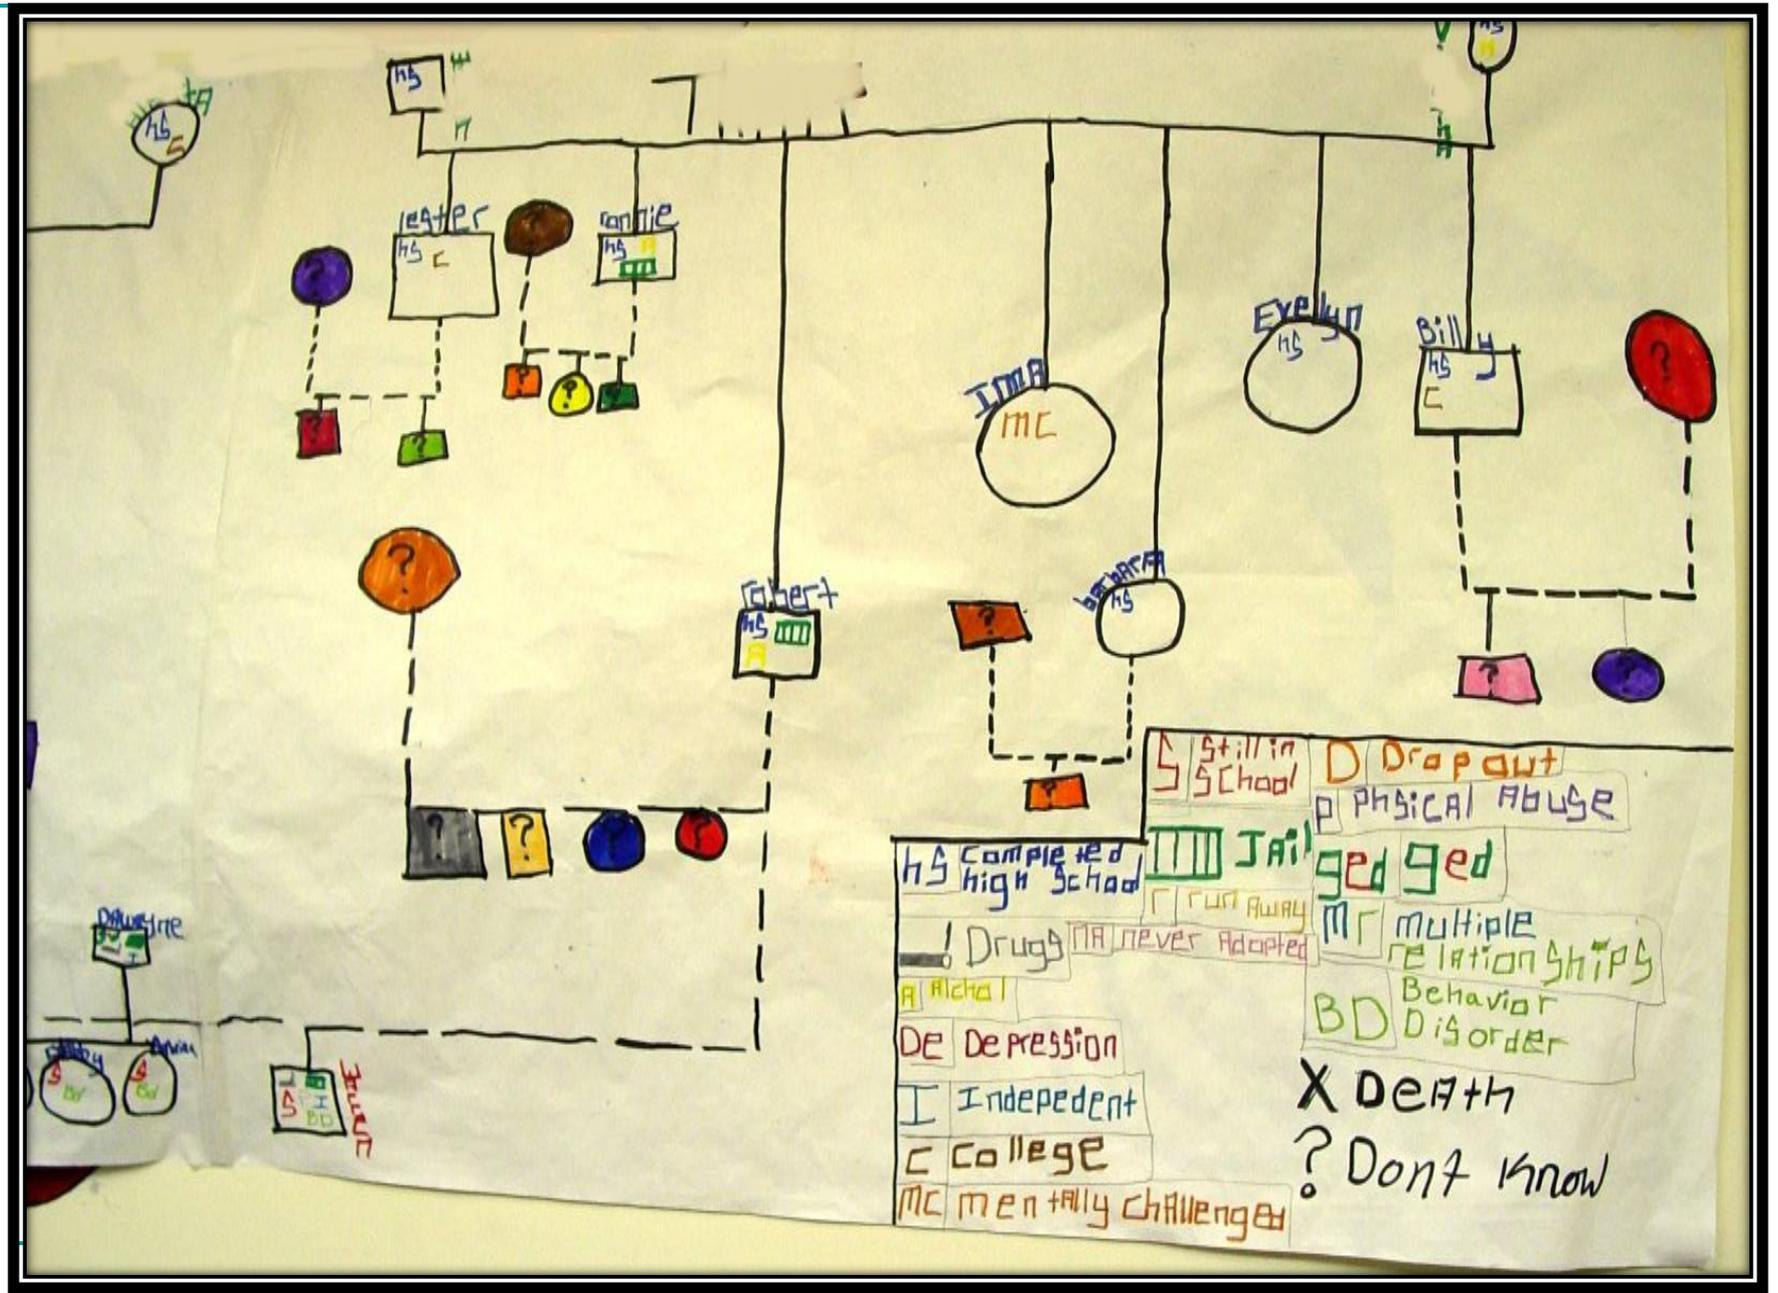 hS
hS
hS
lester
hS C
?
?
ronnie
hS A
?
?
?
?
?
Evelyn
hS
Billy
hS
C
?
IMA
MC
?
robert
hS
A
?
barbarA
hS
?
?
?
?
?
?
?
S Still in
SChool
D Drop out
P PhSiCAl AbuSe
hS Completed
high School
JAil
ged ged
r run AwAy
Mr multiple
relationShipS
! Drugs
NA never Adopted
A Alchol
BD Behavior
DiSorder
De DepreSSion
I Indepedent
X DeAth
C College
? Dont Know
MC mentAlly ChAllenged
I
S
Bd
S
Bd
S I
BD